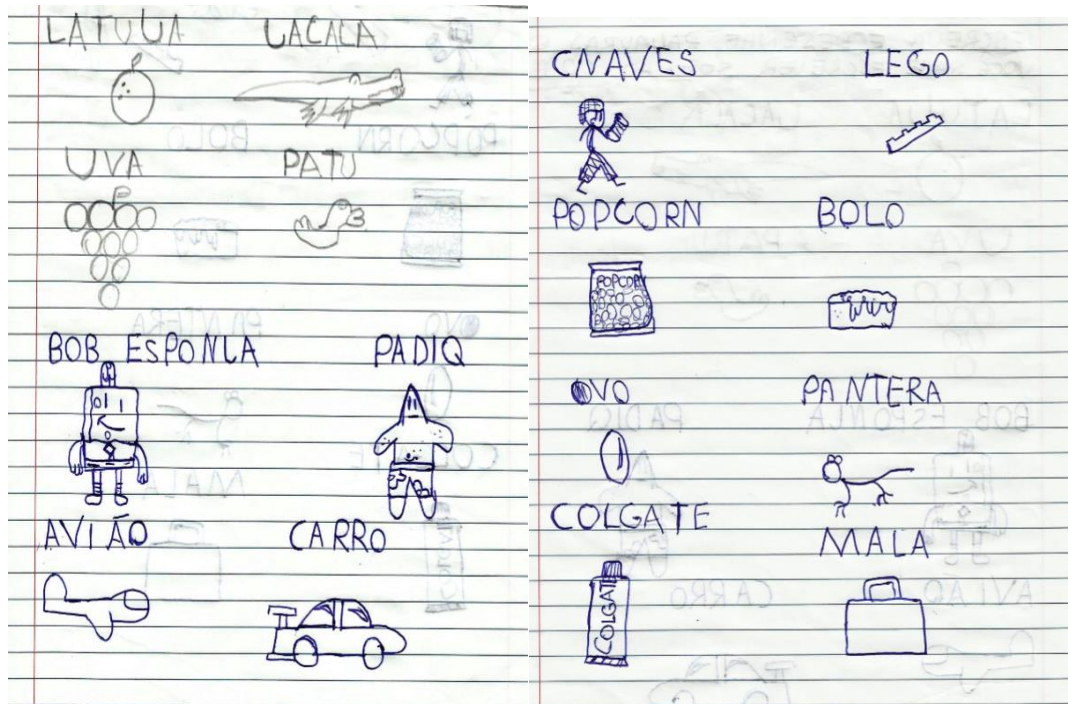 LATUUA LACACA
UVA PATU
BOB ESPONLA PADIQ
AVIÃO CARRO
CNAVES LEGO
POPCORN BOLO
POPCORN
OVO PANTERA
COLGATE MALA
COLGATE